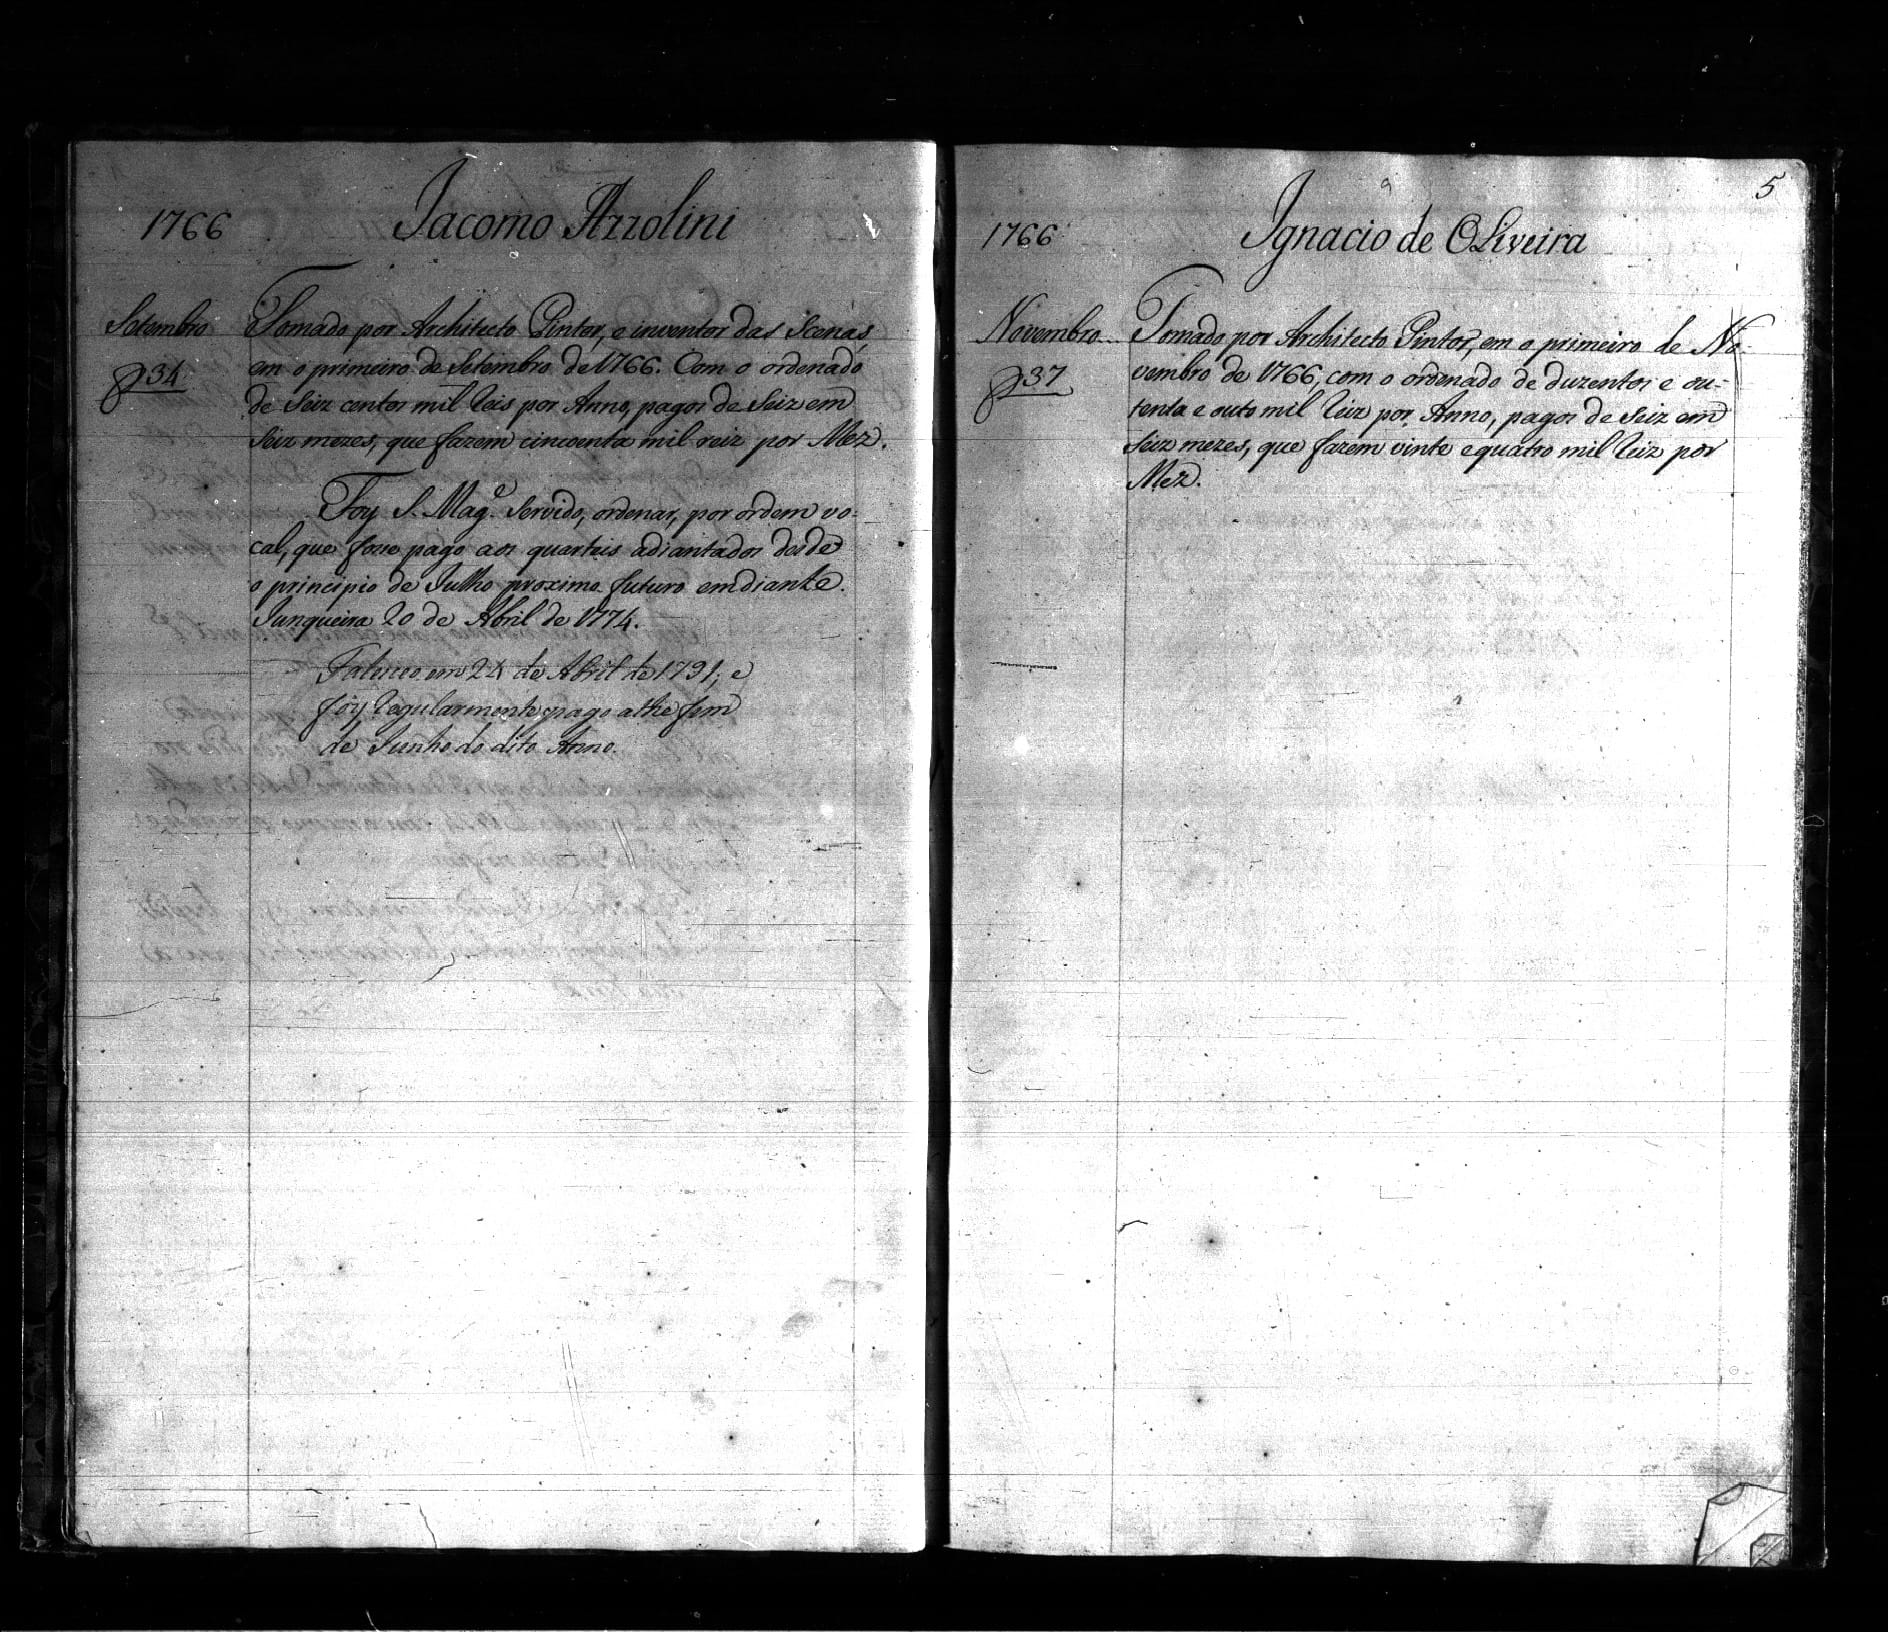 1766
Jacomo Azzolini
Setembro
34
Tomado por Architecto Pintor, e inventor das Scenas,
em o primeiro de Setembro de 1766. Com o ordenado
de Seiz centos mil Reis por Anno, pagos de Seiz em
Seiz mezes, que fazem cincoenta mil reiz por Mez.
Foy S. Mag.e Servido, ordenar, por ordem vo-
cal, que fosse pago aos quarteis adiantados desde
o principio de Julho proximo futuro emdiante.
Junqueira 20 de Abril de 1774.
Faleceo em 24 de Abril de 1791; e
foy Regularmente pago athe fim
de Junho do dito Anno.
5
1766
Ignacio de OLiveira
Novembro
37
Tomado por Architecto Pintor, em o primeiro de No-
vembro de 1766, com o ordenado de duzentos e ou-
tenta e outo mil Reiz por Anno, pagos de Seiz em
Seiz mezes, que fazem vinte e quatro mil Reiz por
Mez.